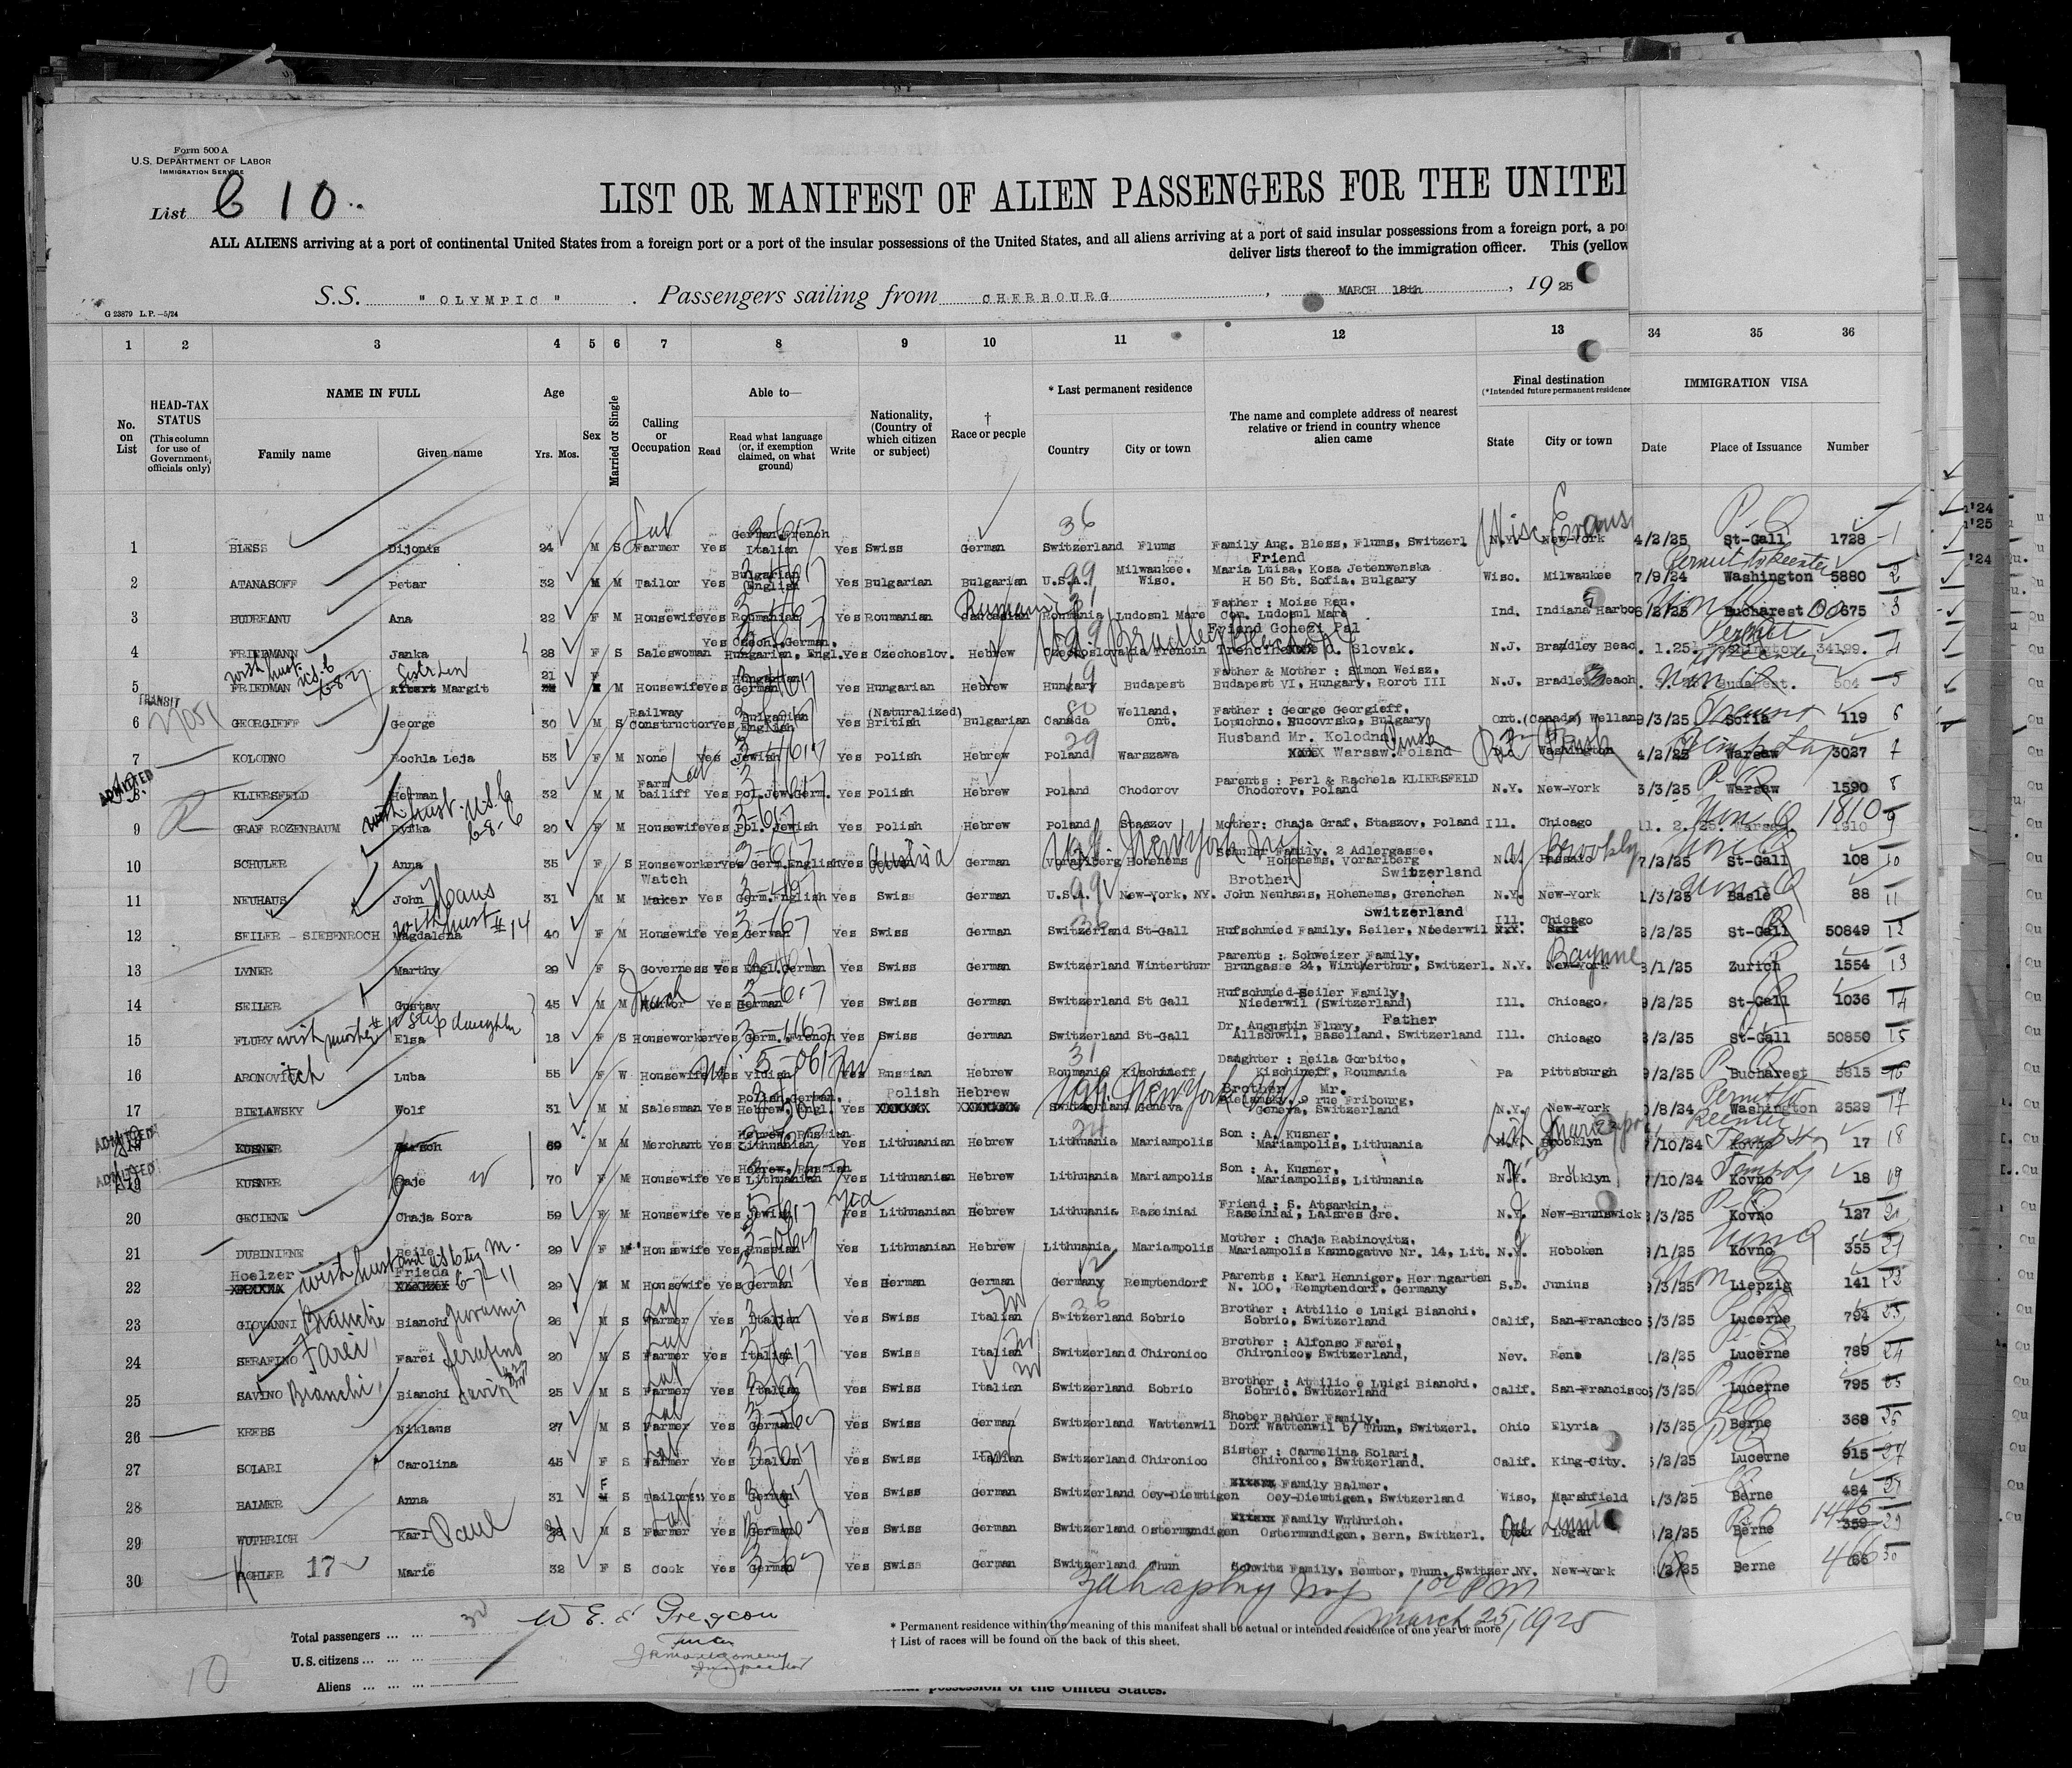 Form 500 A
U.S. DEPARTMENT OF LABOR
IMMIGRATION SERVICE
List C 10.
LIST OR MANIFEST OF ALIEN PASSENGERS FOR THE UNITE
ALL ALIENS arriving at a port of continental United States from a foreign port or a port of the insular possessions of the United States, and all aliens arriving at a port of said insular possessions from a foreign port, a po
deliver lists thereof to the immigration officer. This (yellow
S.S. " OLYMPIC " . Passengers sailing from CHERBOURG , MARCH 18th , 19 25
G 23879 L.P.—5/24
1 2 3 4 5 6 7 8 9 10 11 12 13 34 35 36
No. on List
HEAD-TAX STATUS (This column for use of Government officials only)
NAME IN FULL
Family name Given name
Age Yrs. Mos.
Sex
Married or Single
Calling or Occupation
Able to—
Read
Read what language (or, if exemption claimed, on what ground)
Write
Nationality, (Country of which citizen or subject)
† Race or people
* Last permanent residence
Country City or town
The name and complete address of nearest relative or friend in country whence alien came
Final destination
(*Intended future permanent residence
State City or town
IMMIGRATION VISA
Date Place of Issuance Number
1 BLESS Dijonis 24 M S Farmer Yes German French Italian Yes Swiss German Switzerland Flums Family Aug. Bless, Flums, Switzerl N.Y. New-York 4/2/25 St-Gall 1728
2 ATANASOFF Petar 32 M M Tailor Yes Bulgarian English Yes Bulgarian Bulgarian U.S.A. Milwauke. Wisc. Friend Maria Luisa, Kosa Jetenwenska H 50 St. Sofia, Bulgary Wisc. Milwaukee 7/9/24 Washington 5880
3 BUDREANU Ana 22 F M Housewife Yes Roumanian Yes Roumanian Caucasian Roumania Ludosul Mare Father : Moize Rau. Com. Ludosul Mare Ind. Indiana Harbo 6/2/25 Bucharest 675
4 FRIEDMANN Janka 28 F S Saleswoman Yes Czech. German, Hungarian, Engl. Yes Czechoslov. Hebrew Czechoslovakia Trencin N.J. Bradley Beac 1.25. 34199.
5 FRIEDMAN Margit 21 F M Housewife Yes Hungarian German Yes Hungarian Hebrew Hungary Budapest Father & Mother : Simon Weisz. Budapest VI, Hungary, Rorot III N.J. Bradley Beach Budapest. 504
TRANSIT
6 GEORGIEFF George 30 M S Railway Constructor Yes Bulgarian English Yes (Naturalized) British Bulgarian Canada Welland, Ont. Father : George Georgieff, Lopuchno, Bucovrsko, Bulgary Ont. (Canada) Wellan 9/3/25 Sofia 119
7 KOLODNO Rochla Leja 53 F M None Yes Jewish Yes Polish Hebrew Poland Warszawa Husband Mr. Kolodno Warsaw. Poland Washington 4/2/25 Warsaw 3027
ADMITTED
8 KLIERSFELD Herman 32 M M Farm bailiff Yes Pol. Jew. Germ. Yes Polish Hebrew Poland Chodorov Parents : Perl & Rachela KLIERSFELD Chodorov, Poland N.Y. New-York 3/3/25 Warsaw 1590
9 GRAF ROZENBAUM Ryfka 20 F M Housewife Yes Pol. Jewish Yes Polish Hebrew Poland Staszov Mother: Chaja Graf, Staszov, Poland Ill. Chicago 1810
10 SCHULER Anna 35 F S Houseworker Yes Germ. English Yes Austria German Vorarlberg Hohenems Schuler Family, 2 Adlergasse. Hohenems, Vorarlberg Passaic 7/2/25 St-Gall 108
11 NEUHAUS John Hans 31 M M Watch Maker Yes Germ. English Yes Swiss German U.S.A. New-York, NY. Brother Switzerland John Neuhaus, Hohenems, Grenchen N.Y. New-York 1/3/25 Basle 88
12 SEILER - SIEBENROCH Magdalena with hust #14 40 F M Housewife Yes German Yes Swiss German Switzerland St-Gall Switzerland Hufschmied Family, Seiler, Niederwil Ill. Chicago 2/2/25 St-Gall 50849
13 LYNER Marthy 29 F S Governess Yes Engl. German Yes Swiss German Switzerland Winterthur Parents : Schweizer Family, Brungasse 24, Winterthur, Switzerl. N.Y. New-York 8/1/25 Zurich 1554
14 SEILER Gustav 45 M M Yes German Yes Swiss German Switzerland St Gall Hufschmied-Seiler Family, Niederwil (Switzerland) Ill. Chicago. 9/2/25 St-Gall 1036
15 FLURY with mother #12 Step daughter Elsa 18 F S Houseworker Yes Germ. French Yes Swiss German Switzerland St-Gall Father Dr. Augustin Flury, Allschwil, Baselland, Switzerland Ill. Chicago 2/2/25 St-Gall 50850
16 ARONOVitch Luba 55 F W Housewife Yes Yidish Yes Russian Hebrew Roumania Kischineff Daughter : Beila Gorbitc, Kischineff, Roumania Pa Pittsburgh 9/2/25 Bucharest 5815
17 BIELAWSKY Wolf 31 M M Salesman Yes Polish, German. Hebrew. Engl. Yes Polish Hebrew Switzerland Geneva Brother Mr. Bielawsky, 9 rue Fribourg, Geneva, Switzerland N.Y. New-York 0/8/24 Washington 2529
ADMITTED
18 KUSNER Hirsch 69 M M Merchant Yes Hebrew, Russian Lithuanian Yes Lithuanian Hebrew Lithuania Mariampols Son : A. Kusner, Mariampols, Lithuania Brooklyn 7/10/24 Kovno 17
ADMITTED
19 KUSNER Paje 70 F M Housewife Yes Hebrew, Russian Lithuanian Yes Lithuanian Hebrew Lithuania Mariampols Son : A. Kusner, Mariampols, Lithuania N.Y. Brooklyn 7/10/24 Kovno 18
20 GECIENE Chaja Sora 59 F M Housewife Yes Jewish Yes Lithuanian Hebrew Lithuania Raseiniai Friend : S. Atsarkin, Raseiniai, Laisres Gre. New-Brunswick 3/3/25 Kovno 127
21 DUBINIENE Beile 29 F M Housewife Yes Russian Yes Lithuanian Hebrew Lithuania Mariampols Mother : Chaja Rabinovitz. Mariampols Kaunogatve Nr. 14, Lit. Hoboken 9/1/25 Kovno 355
22 Hoelzer Frieda 29 M Housewife Yes German Yes German German Germany Remptendorf Parents : Karl Henniger, Herrngarten N. 100, Remptendorf, Germany S.D. Junius 9/3/25 Liepzig 141
23 GIOVANNI Bianchi Bianchi Giovanni 26 M S Farmer Yes Italian Yes Swiss Italian Switzerland Sobrio Brother : Attilio e Luigi Bianchi, Sobrio, Switzerland Calif, San-Francisco 5/3/25 Lucerne 794
24 SERAFINO Farei Farei Serafino 20 M S Farmer Yes Italian Yes Swiss Italian Switzerland Chironico Brother : Alfonso Farei, Chironico, Switzerland, Nev. Reno 1/2/25 Lucerne 789
25 SAVINO Bianchi Bianchi Savino 25 M S Farmer Yes Italian Yes Swiss Italian Switzerland Sobrio Brother : Attilio e Luigi Bianchi, Sobrio, Switzerland Calif. San-Francisco 5/3/25 Lucerne 795
26 KREBS Niklaus 27 M S Farmer Yes German Yes Swiss German Switzerland Wattenwil Shober Bahler Family. Dorf Wattenwil b/ Thun, Switzerl. Ohio Elyria 9/3/25 Berne 368
27 SOLARI Carolina 45 F S Farmer Yes Italian Yes Swiss Italian Switzerland Chironico Sister : Carmelina Solari, Chironico, Switzerland. Calif. King-City. 5/2/25 Lucerne 915
28 BALMER Anna 31 F S Tailoress Yes German Yes Swiss German Switzerland Oey-Diemtigen Family Balmer. Oey-Diemtigen, Switzerland Wisc, Marshfield 1/3/25 Berne 484
29 WUTHRICH Karl Paul M S Farmer Yes German Yes Swiss German Switzerland Ostermundigen Family Wuthrich. Ostermundigen, Bern, Switzerl. Logan /2/25 Berne 359 1446
30 KOHLER 17 Marie 32 F S Cook Yes German Yes Swiss German Switzerland Thun Horwitz Family, Bemtor, Thun, Switzer. NY. New-York Berne 466
1 00 PM
March 25, 1925
Total passengers
U.S. citizens
Aliens
10
* Permanent residence within the meaning of this manifest shall be actual or intended residence of one year or more
† List of races will be found on the back of this sheet.
possession of the United States.